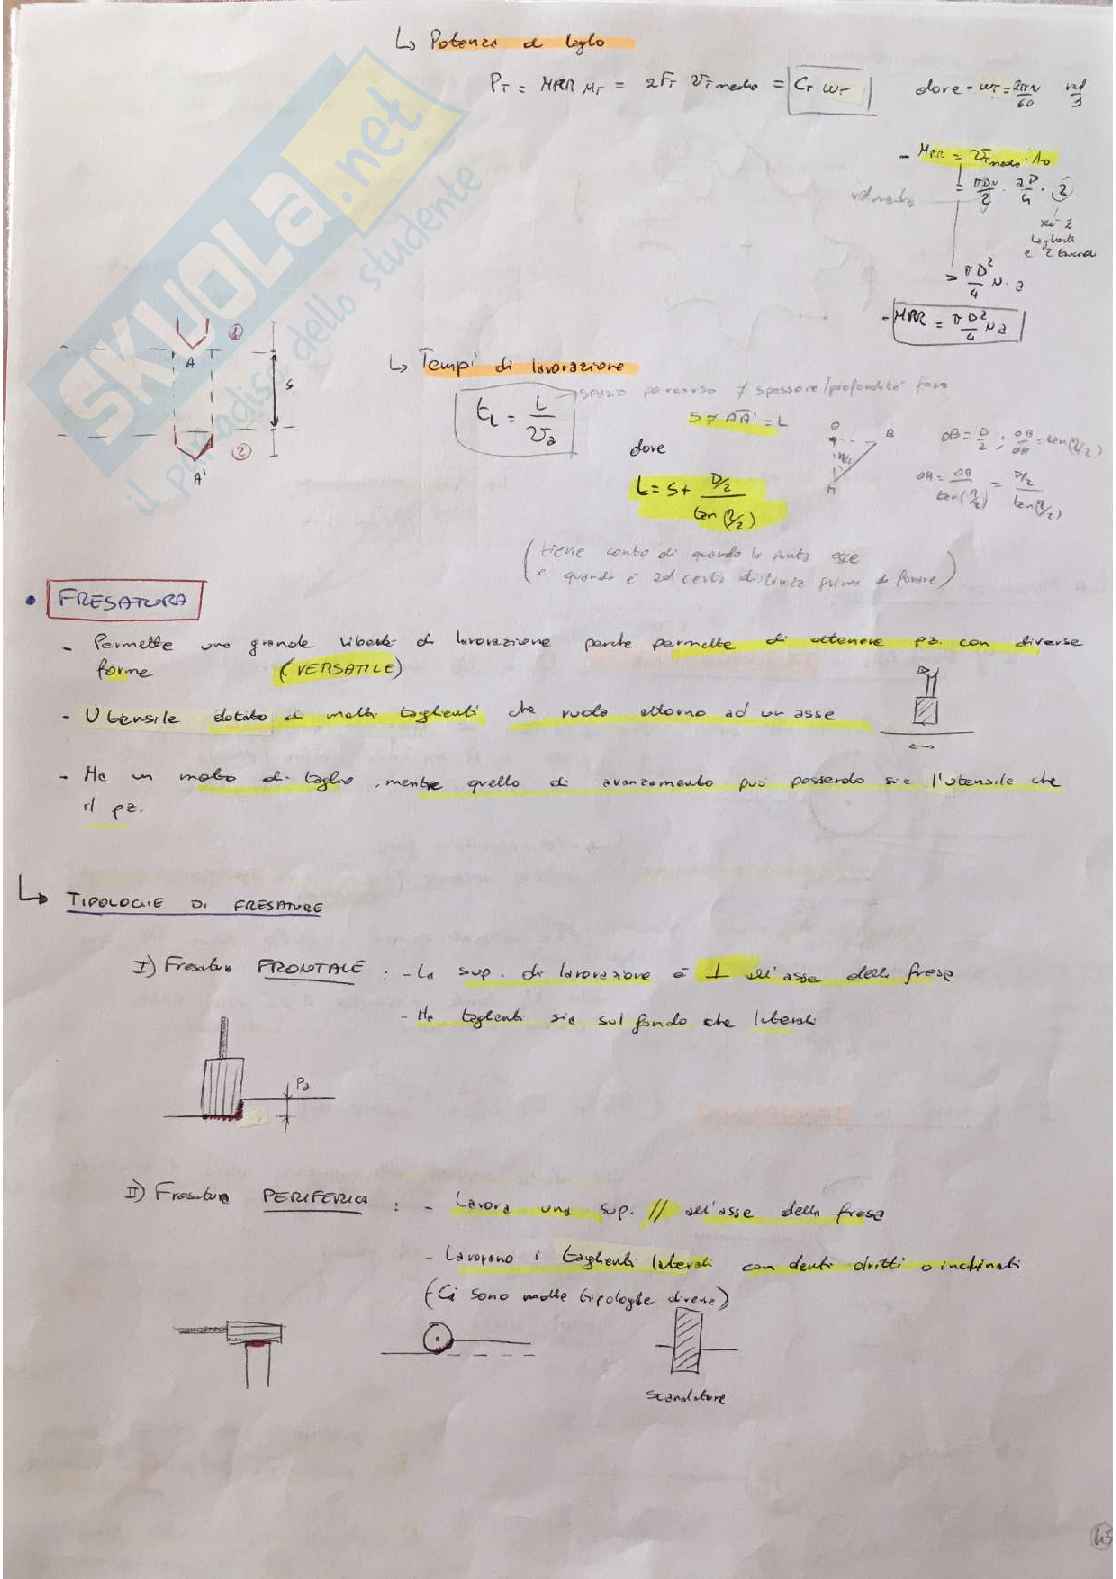 ↳ Potenza di taglio
P_T = MRR M_T = 2F_T v_T medio = C_T ω_T dove - ω_T = 2πN/60 rad/s
- MRR = v_T medio · A_0
= πDN/2 · aD/4 · 2
se 2 taglienti
πD²/4 N · a
- MRR = πD²/4 N a
SKUOLA.net
il paradiso dello studente
① A
s
② A'
↳ Tempi di lavorazione
t_L = L/v_a spazio percorso ≠ spessore/profondità foro
s ≠ AA' = L
dove
L = s + D/2 / tan(β/2)
O B
A
OB = D/2 ; OB/OA = tan(β/2)
OA = OB/tan(β/2) = D/2 / tan(β/2)
(tiene conto di quando la punta esce
e quando è ad certa distanza prima di forare)
• FRESATURA
- Permette una grande libertà di lavorazione perché permette di ottenere pz. con diverse
forme (VERSATILE)
- Utensile dotato di molti taglienti che ruota attorno ad un asse
- Ha un moto di taglio, mentre quello di avanzamento può possederlo sia l'utensile che
il pz.
↳ TIPOLOGIE DI FRESATURE
I) Fresatura FRONTALE : - La sup. di lavorazione è ⊥ all'asse della fresa
- Ha taglienti sia sul fondo che laterali
Pa
II) Fresatura PERIFERICA : - Lavora una sup. // all'asse della fresa
- Lavorano i taglienti laterali con denti dritti o inclinati
(Ci sono molte tipologie diverse)
scanalature